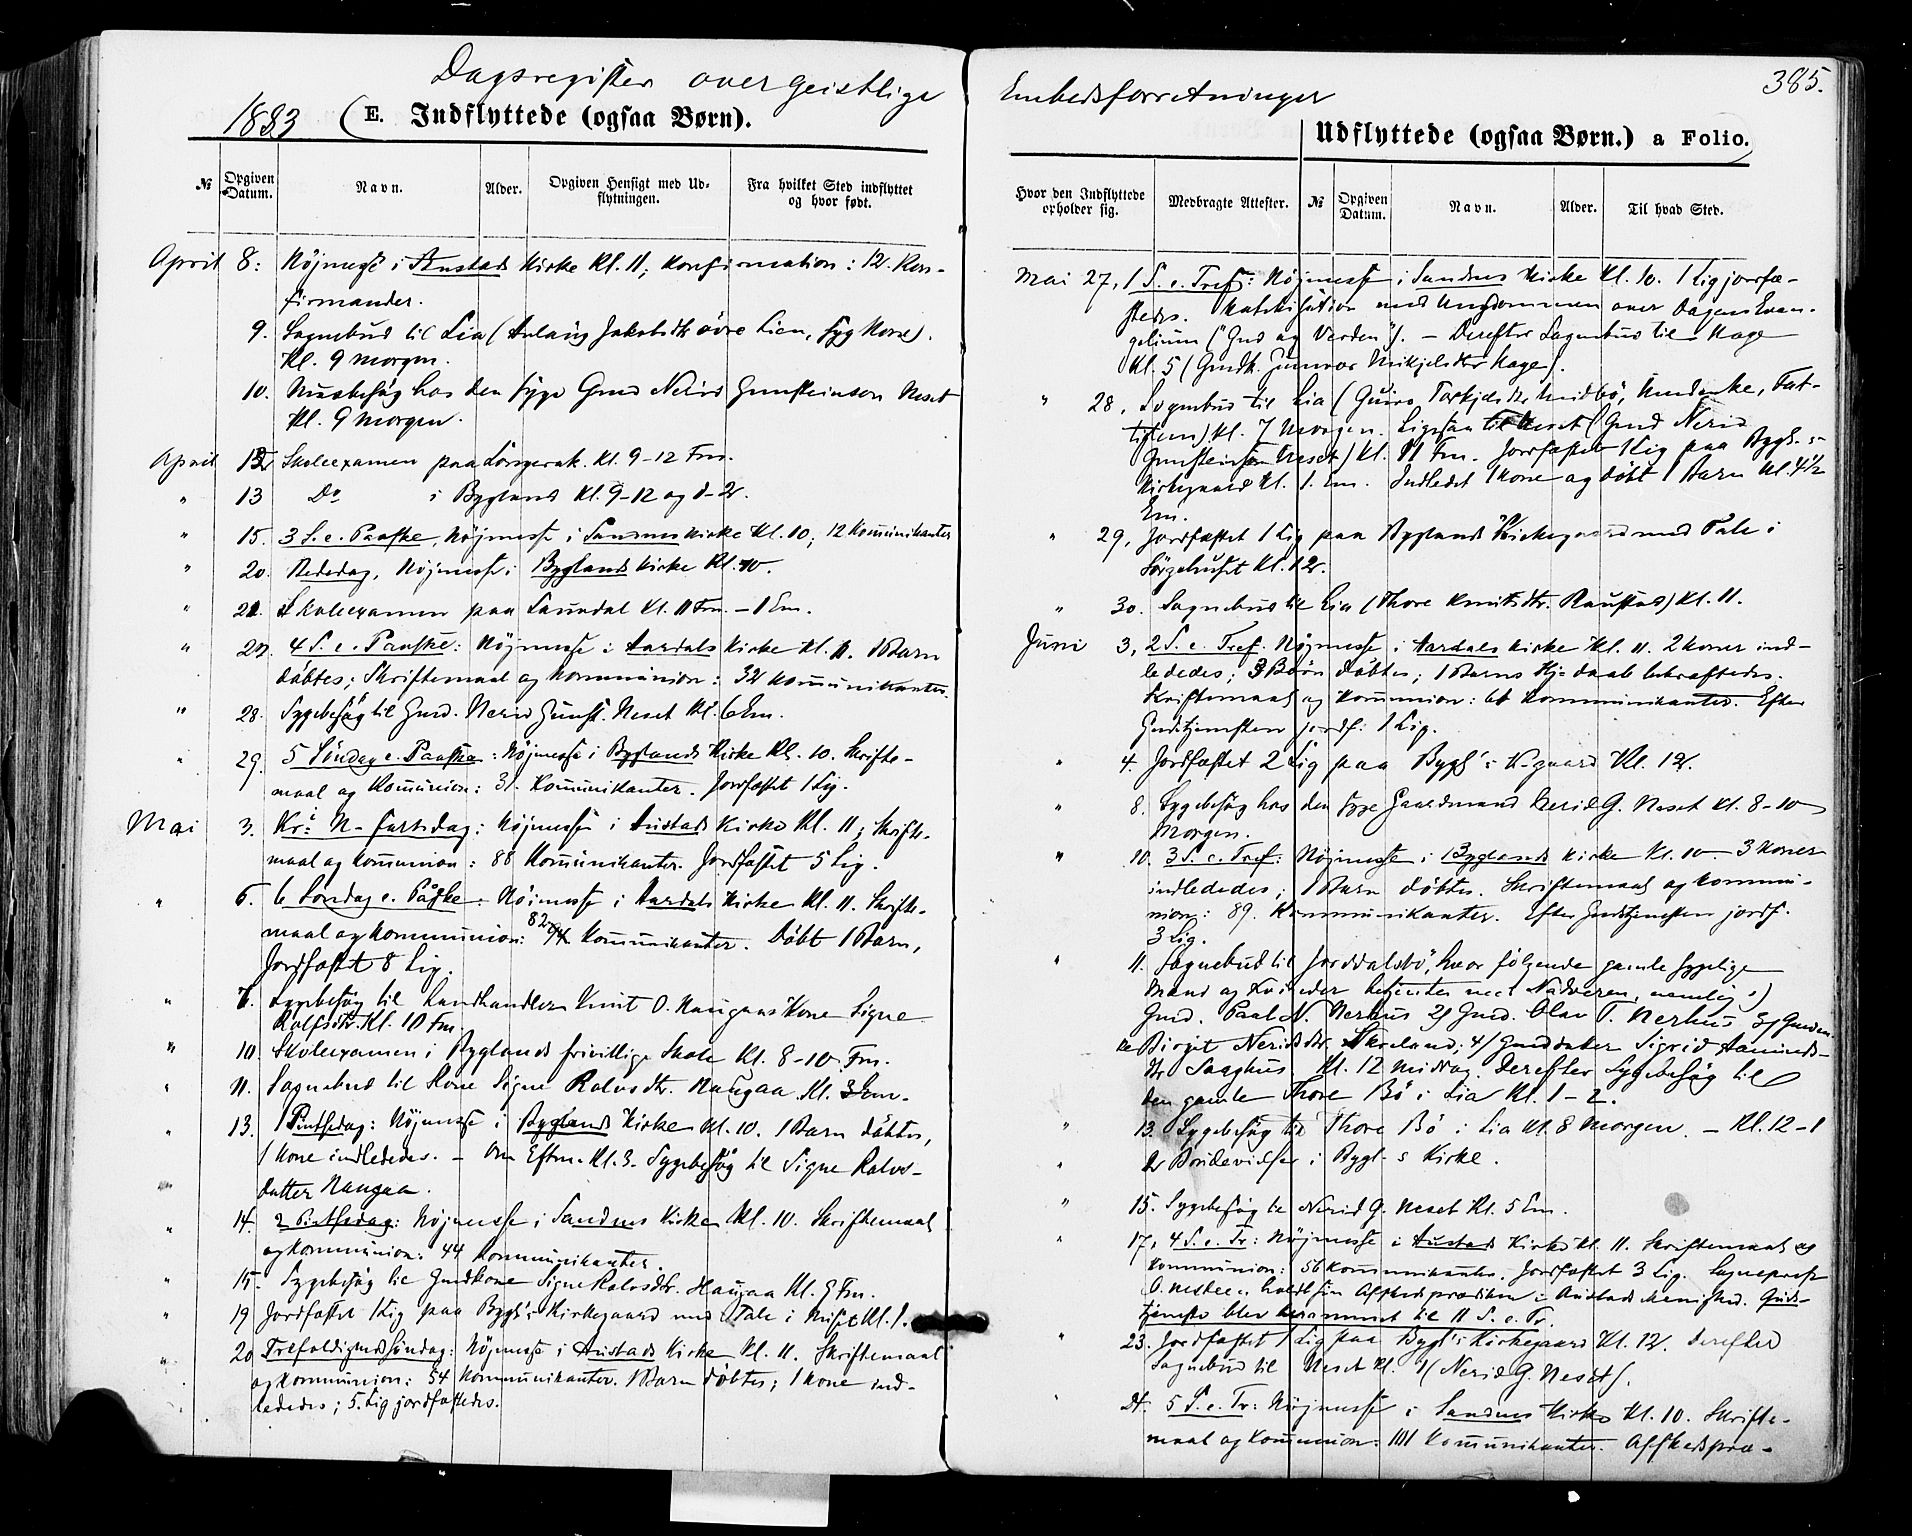 Dagsregister over geistlige
1883 (E. Indflyttede (ogsaa Børn).
№
Opgiven Datum.
Navn.
Alder.
Opgiven Hensigt med Udflytningen.
Fra hvilket Sted indflyttet og hvor født.
April 8: Højmesse i Austads Kirke Kl. 11; Konfirmation: 12 Kon-
firmander.
9. Sognebud til Lia ( Jakobsdtr øvre Lien, syg Kone).
Kl. 9 morgen.
10. Husbesøg hos den syge Gmd Nerid Gunsteinson Neset
Kl. 9 morgen.
April 12 Skoleexamen paa Longerak. Kl. 9-12 Fm.
" 13 Do i Bygland Kl. 9-12 og
" 15. 3 S. e. Paaske, Højmesse i Sandnes Kirke Kl. 10; 12 Kommunikanter
" 20. Bededag, Højmesse i Byglands Kirke Kl. 10.
" 21. Skoleexamen paa Kl. 11 Fm. - 1 Em.
" 22. 4 S. e. Paaske: Højmesse i Aardals Kirke Kl. 11. 1 Barn
døbtes; Skriftemaal og Kommunion: 32 Kommunikanter.
" 28. Sygebesøg til Gmd. Nerid Gunst. Neset Kl. 6 Em.
" 29. 5 Søndag e. Paaske: Højmesse i Byglands Kirke Kl. 10. Skrifte-
maal og Kommunion: 31 Kommunikanter. Jordfæstet 1 Lig.
Mai 3. Kr: H- fartsdag: Højmesse i Austads Kirke Kl. 11; Skrifte-
maal og Kommunion: 88 Kommunikanter. Jordfæstet 5 Lig.
" 6. 6 Søndag e. Påske: Højmesse i Aardals Kirke Kl. 11. Skrifte-
maal og Kommunion: 82 Kommunikanter. Døbt 1 Barn,
Jordfæstet 8 Lig.
" 7. Sygebesøg til Landhandler Knut O. Haugaas Kone Signe
Rolfsdtr. Kl. 10 Fm.
" 10. Skoleexamen i Byglands frivillige Skole Kl. 8-10 Fm.
" 11. Sognebud til Kone Signe Rolvsdtr. Haugaa Kl. 3 Em.
" 13. 1 Pintsedag: Højmesse i Byglands Kirke Kl. 10. 1 Barn døbtes,
1 Kone indlededes. - Om Eftm. Kl. 3. Sygebesøg til Signe Rolvs-
datter Haugaa.
" 14. 2 Pintsedag: Højmesse i Sandnes Kirke Kl. 10. Skriftemaal
og Kommunion: 44 Kommunikanter.
" 15. Sygebesøg til Gmdkone Signe Rolvsdtr. Haugaa Kl. Fm.
" 19 Jordfæstet 1 Lig paa Bygl's Kirkegaard med Tale i Kl. 1.
" 20 Trefoldighedssøndag: Højmesse i Austads Kirke Kl. 11. Skriftemaal
og Kommunion: 54 Kommunikanter. 1 Barn døbtes; 1 Kone ind-
lededes; 5. Lig jordfæstedes.
Embedsforretninger
385.
Udflyttede (ogsaa Børn.) a Folio.)
Hvor den Indflyttede opholder sig.
Medbragte Attester.
№
Opgiven Datum.
Navn.
Alder.
Til hvad Sted.
Mai 27, 1 S. e. Tref: Højmesse i Sandnes Kirke Kl. 10. 1 Lig jordfæ-
stedes. Katekisation med Ungdommen over Dagens Evan-
gelium ("Gud og Verden"). - Derefter Sognebud til Hage
Kl. 5 (Gmdk. Gunvor Mikjelsdtr Hage).
" 28, Sognebud til Lia ( Torkjelsdtr Midbø, Gmdenke, Fat-
tiglem) Kl. 7 Morgen. Ligesaa til Neset (Gmd Nerid
Gunsteinsøn Neset) Kl. 11 Fm. Jordfæstet 1 Lig paa Bygl. s
Kirkegaard Kl. 1. Em. Indledet 1 Kone og døbt 1 Barn Kl. 4 1/2
Em.
" 29, Jordfæstet 1 Lig paa Byglands Kirkegaard med Tale i
Sørgehuset Kl. 12.
" 30. Sognebud til Lia (Thore Knutsdtr. Raustad) Kl. 11.
Juni 3, 2 S. e. Tref. Højmesse i Aardals Kirke Kl. 11. 2 Koner ind-
lededes; 3 Børn døbtes; 1 Barns Hj=daab bekræftedes.
Skriftemaal og Kommunion: 61 Kommunikanter. Efter
Gudstjenesten jordf: 1 Lig.
" 4. Jordfæstet 2 Lig paa Bygl's K.gaard Kl. 12.
" 8. Sygebesøg hos den syge Gaardmand Nerid G. Neset Kl. 8-10
Morgen.
" 10. 3 S. e. Tref: Højmesse i Byglands Kirke Kl. 10 - 3 Koner
indlededes; 1 Barn døbtes. Skriftemaal og Kommu-
nion: 89. Kommunikanter. Efter Gudstjenesten jordf.
3 Lig.
" 11. Sognebud til Jorddalsbø, hvor følgende gamle sygelige
Mænd og Kvinder betjentes med Nadveren, nemlig 1)
Gmd. Paal N. Nerhus 2) Gmd. Olav T. Nerhus 3) Gmden-
ke Birgit Neridsdtr. Skreland; 4) Gmddatter Sigrid Aamunds-
dtr Saaghus Kl. 12 middag. Derefter Sygebesøg til
den gamle Thore Bø i Lia Kl. 1-2.
" 13. Sygebesøg til Thore Bø i Lia Kl. 8 Morgen. - Kl. 12-1
" Brudevielser i Bygl- s Kirke.
" 15. Sygebesøg til Nerid G. Neset Kl. 5 Em.
" 17, 4 S. e. Tr: Højmesse i Austads Kirke Kl. 11. Skriftemaal og
Kommunion: 56 Kommunikanter. Jordfæstet 3 Lig. Sognepræst
O. holdt sin Afskedsprædiken i Austads Menighed. Guds-
tjeneste blev berammet til 11 S. e. Tr.
" 23. Jordfæstet 1 Lig paa Bygl's Kirkegaard Kl. 12. derefter
Sognebud til Neset Kl. 1 (Nerid G. Neset).
" 24. 5 S. e. Tr: Højmesse i Sandnes Kirke Kl. 10. Skrifte-
maal og Kommunion: 101 Kommunikanter. Afskedspræ-